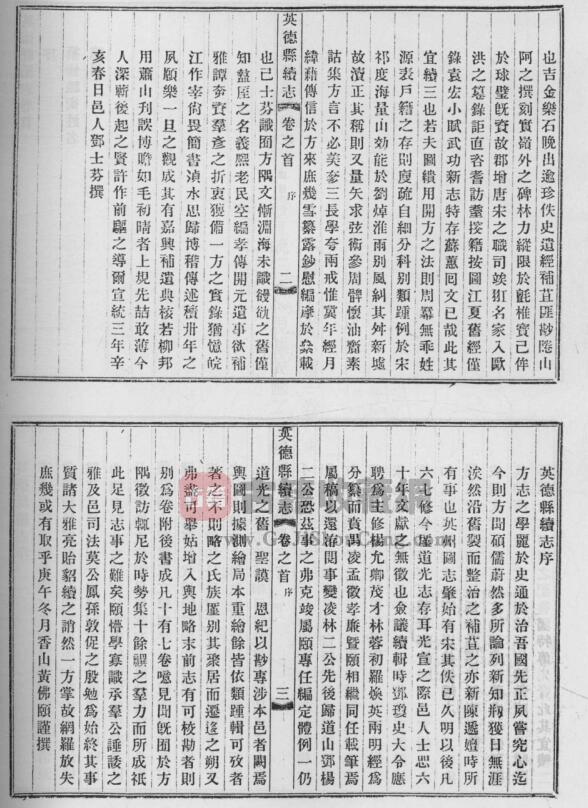 也吉金樂石晚出逾珍佚史遺經補苴匪尠隱山
阿之撰刻實嶺外之碑林力縱限於氈椎寶已侔
於球璧旣賚故郡增唐宋之職司竢名家入歐
洪之錄詎直咨耆訪耋接籍按圖江夏舊經僅
錄袁宏小賦武功新志特存蘇蕙回文已哉此其
宜續三也若夫圖繢用開方之法則周羃無乖姓
源表戶籍之存則疏自細分科别類踵例於宋
祁度海量山効能於劉焯淮雨别風糾其舛新墟
故瀆正其稱則又量矢求弦術參周髀懷油齎素
詁集方言不必美三長學夸兩戒惟冀年經月
緯藉傳信於方來庶幾雪纂露鈔慰編摩於載
英德縣續志 卷之首 序 二
也已士芬識囿方隅文慚淵海未識之舊僅
知盩厔之名義熙老民空編孝傳開元遺事欲補
雅譚奈賓羣彥之折衷獲備一方之實錄猶憶皖
江作宰尙畏簡書湞水思歸博稽傳述積卅年之
夙願樂一旦之觀成其有嘉興補遺典核若柳邦
用蕭山刋誤博贍如毛初晴者上規先喆敢薄今
人深蘄後起之賢許作前驅之導爾宣統三年辛
亥春日邑人鄧士芬撰
英德縣續志序
方志之學麗於史通於治吾國先正夙嘗究心迄
今則方聞碩儒蔚然多所論列新知刱獲日無涯
涘然沿舊製而整治之補苴之亦新陳遞嬗時所
有事也英州圖志肇始有宋其佚已久明以後凡
六七修今僅道光志存耳光宣之際邑人士思六
十年文獻之無徵也僉議續輯時鄧瓊史大令應
聘爲主修楊允卿茂才林蓉初羅煥英兩明經爲
分纂而貴凌孟徵孝廉暨頤相繼同任載筆焉
屬稿以還洊閱事變凌林二公先後歸道山鄧楊
二公恐茲事之弗克竣屬頤專任編定體例一仍
英德縣續志 卷之首 序 三
道光之舊 聖謨 恩紀以尠專涉本邑者闕焉
輿圖則據測繪局本重繪餘皆依類踵輯可攷者
著之不則略之氏族臚别其聚居而遷迻之朔又
弗盡可舉姑增入輿地略末前志有可校勘者則
别爲卷附後書成凡十有七卷噫見聞旣囿於方
隅徵訪輒尼於時勢集十餘禩之羣力而所成祇
此足見志事之難矣頤懵學寡識承羣公諈諉之
雅及邑司法莫公鳳孫敦促之殷勉爲始終其事
質諸大雅亮貽貂續之誚然一方掌故網羅放失
庶幾或有取乎庚午冬月香山黃佛頤謹撰